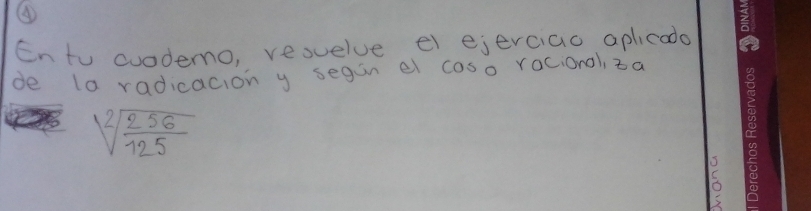 ④
En tu cuaderno, resuelve el ejerciao aplicado
de la radicación y según el caso racionaliza
\sqrt[2]{\frac{256}{125}}
DINÁM
Derechos Reservados